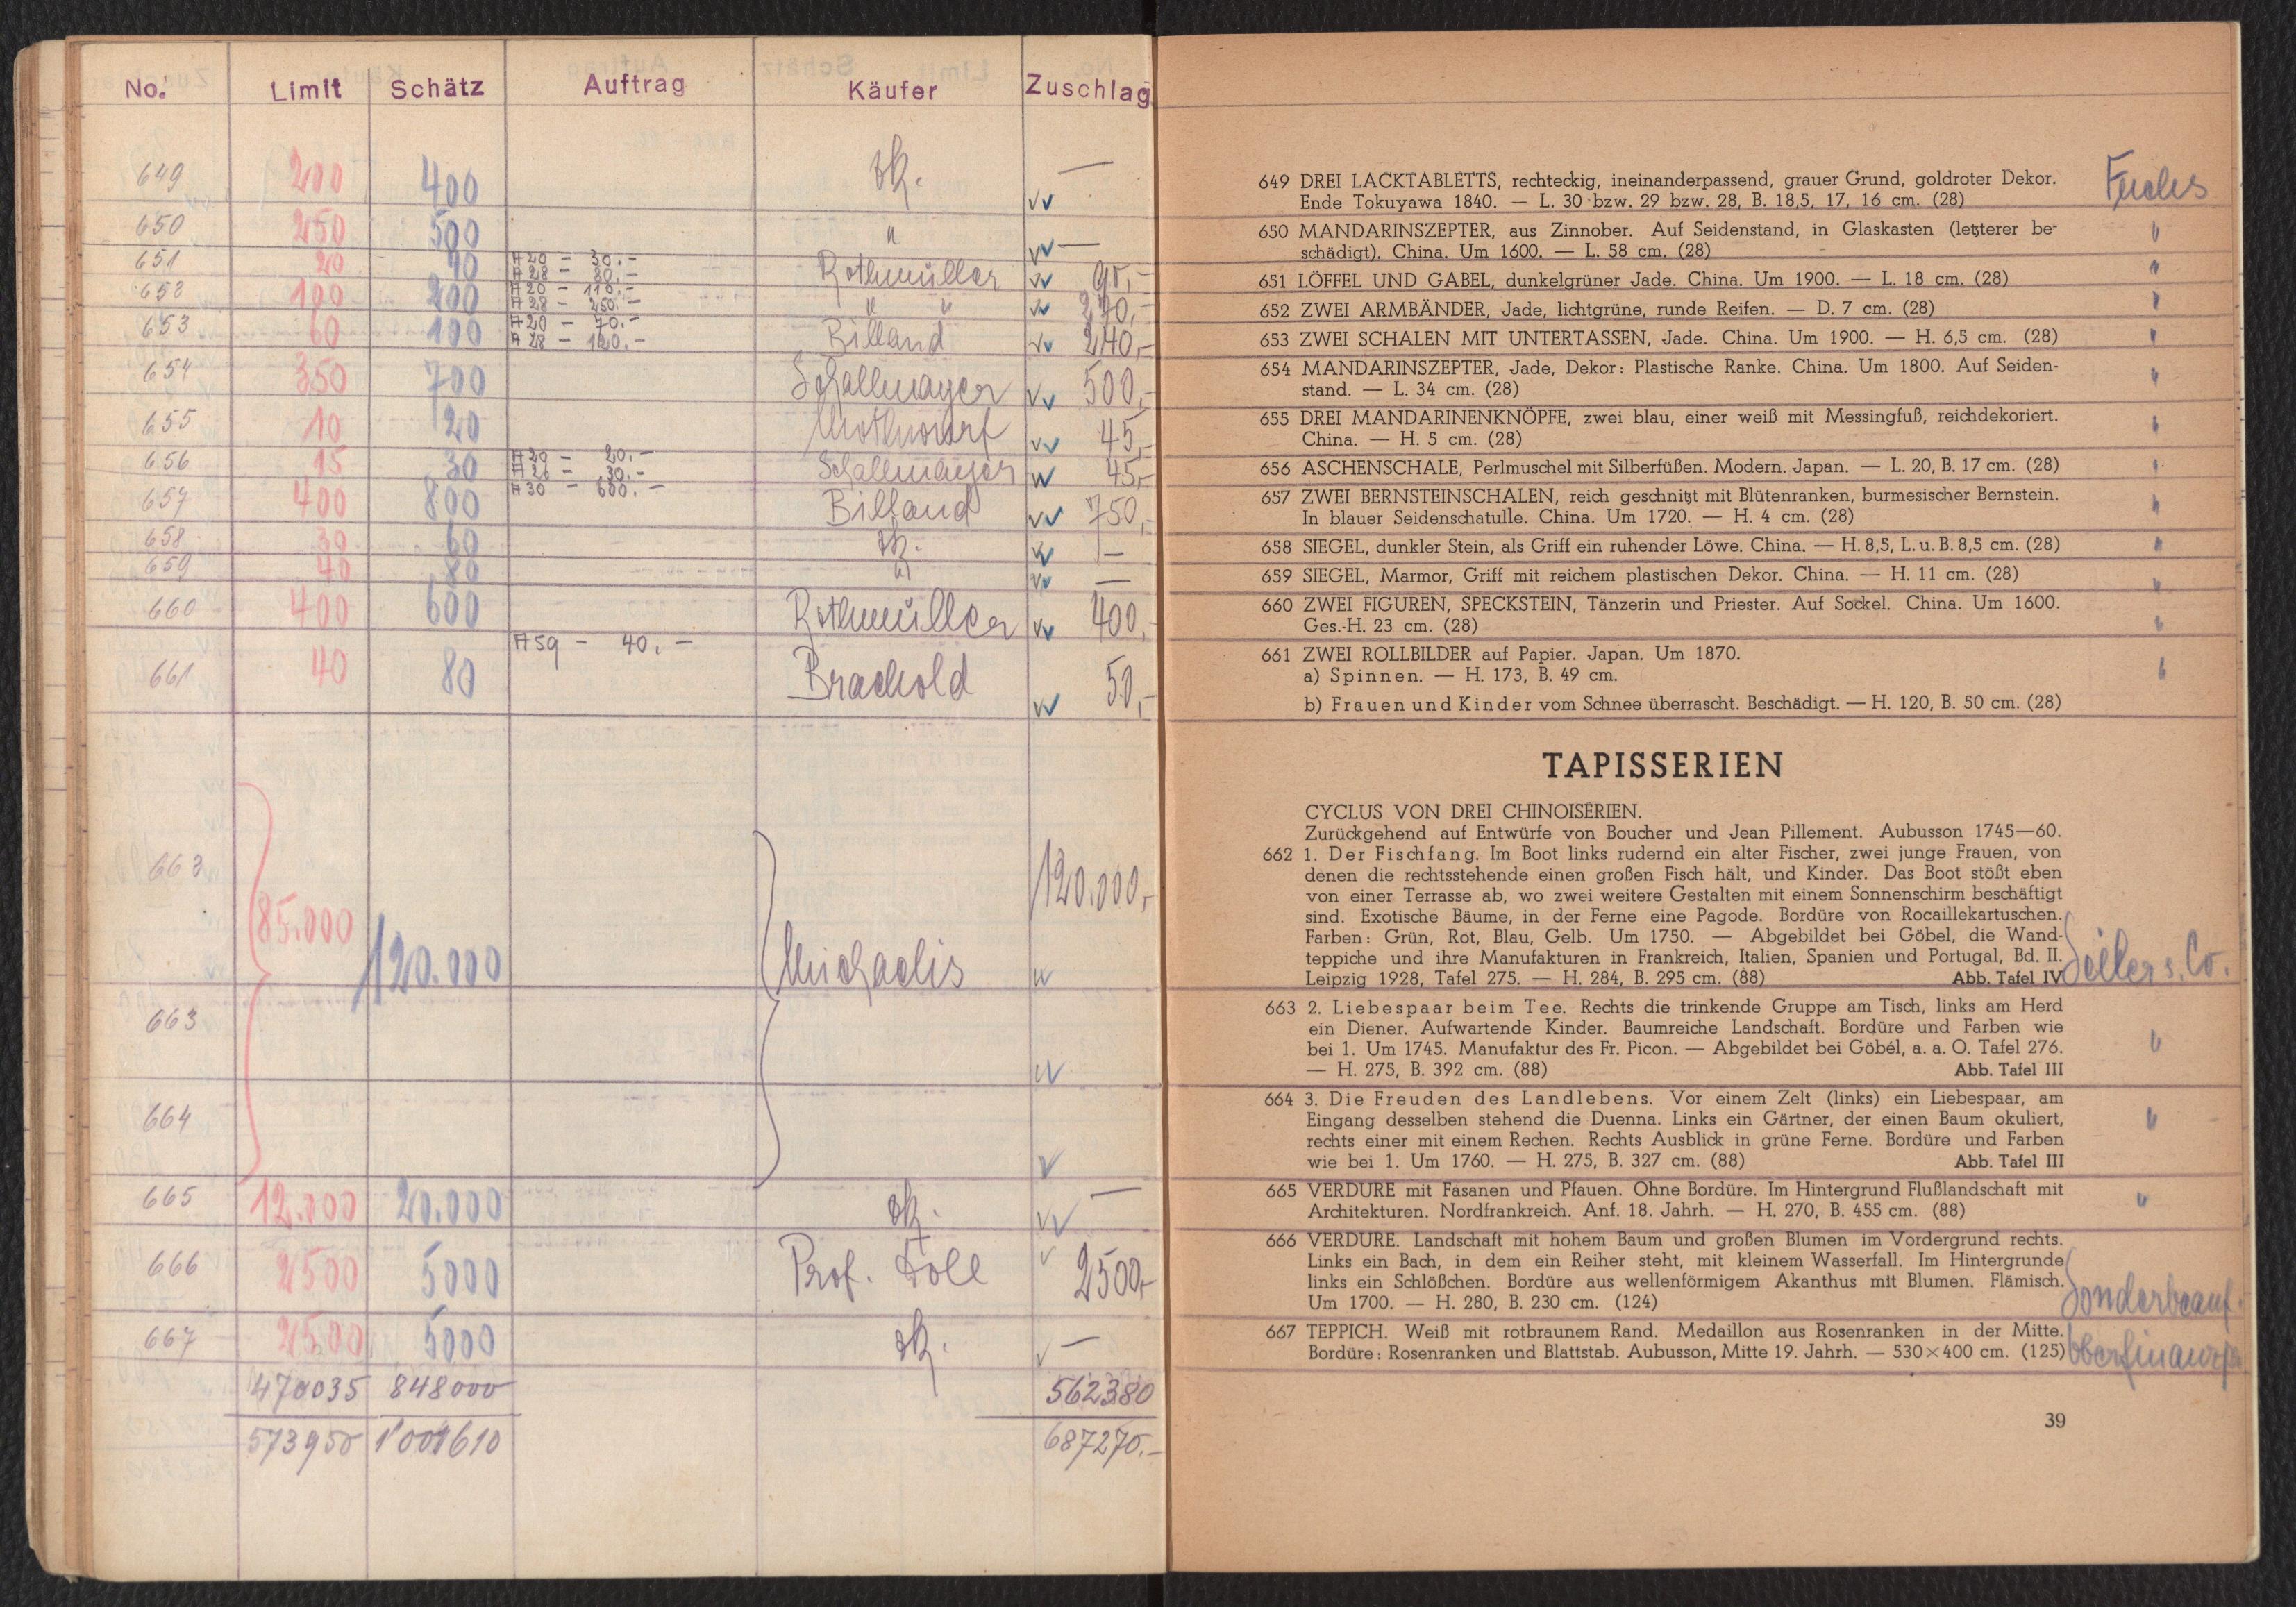 No. Limit Schätz Auftrag Käufer Zuschlag
649 200 400 —
650 250 500 " —
651 20 40 A20 – 30.– Rothmüller 95,-
A28 – 80.–
652 100 200 A20 – 110.– " " 270,-
A28 – 250.–
653 60 100 A20 – 70.– Billand 240,-
A28 – 120.–
654 350 700 Schallmayer 500,-
655 10 20 45,-
656 15 30 A20 – 20.– Schallmayer 45,-
A26 – 30.–
657 400 800 A30 – 600.– Billand 750,-
658 30 60 —
659 40 80 " —
660 400 600 Rothmüller 400,-
661 40 80 A59 – 40.– Brachold 50,-
663 85.000 120.000 Michaelis 120.000,-
663
664
665 12.000 20.000 —
666 2500 5000 Prof. 2500,-
667 2500 5000 —
470035 848000 562380
573950 687270.–
649 DREI LACKTABLETTS, rechteckig, ineinanderpassend, grauer Grund, goldroter Dekor. Fuchs
Ende Tokuyawa 1840. — L. 30 bzw. 29 bzw. 28, B. 18,5, 17, 16 cm. (28)
650 MANDARINSZEPTER, aus Zinnober. Auf Seidenstand, in Glaskasten (letzterer be- "
schädigt). China. Um 1600. — L. 58 cm. (28)
651 LÖFFEL UND GABEL, dunkelgrüner Jade. China. Um 1900. — L. 18 cm. (28) "
652 ZWEI ARMBÄNDER, Jade, lichtgrüne, runde Reifen. — D. 7 cm. (28) "
653 ZWEI SCHALEN MIT UNTERTASSEN, Jade. China. Um 1900. — H. 6,5 cm. (28) "
654 MANDARINSZEPTER, Jade, Dekor: Plastische Ranke. China. Um 1800. Auf Seiden- "
stand. — L. 34 cm. (28)
655 DREI MANDARINENKNÖPFE, zwei blau, einer weiß mit Messingfuß, reichdekoriert. "
China. — H. 5 cm. (28)
656 ASCHENSCHALE, Perlmuschel mit Silberfüßen. Modern. Japan. — L. 20, B. 17 cm. (28) "
657 ZWEI BERNSTEINSCHALEN, reich geschnitzt mit Blütenranken, burmesischer Bernstein. "
In blauer Seidenschatulle. China. Um 1720. — H. 4 cm. (28)
658 SIEGEL, dunkler Stein, als Griff ein ruhender Löwe. China. — H. 8,5, L. u. B. 8,5 cm. (28) "
659 SIEGEL, Marmor, Griff mit reichem plastischen Dekor. China. — H. 11 cm. (28) "
660 ZWEI FIGUREN, SPECKSTEIN, Tänzerin und Priester. Auf Sockel. China. Um 1600. "
Ges.-H. 23 cm. (28)
661 ZWEI ROLLBILDER auf Papier. Japan. Um 1870. "
a) Spinnen. — H. 173, B. 49 cm.
b) Frauen und Kinder vom Schnee überrascht. Beschädigt. — H. 120, B. 50 cm. (28)
TAPISSERIEN
CYCLUS VON DREI CHINOISERIEN.
Zurückgehend auf Entwürfe von Boucher und Jean Pillement. Aubusson 1745—60.
662 1. Der Fischfang. Im Boot links rudernd ein alter Fischer, zwei junge Frauen, von
denen die rechtsstehende einen großen Fisch hält, und Kinder. Das Boot stößt eben
von einer Terrasse ab, wo zwei weitere Gestalten mit einem Sonnenschirm beschäftigt
sind. Exotische Bäume, in der Ferne eine Pagode. Bordüre von Rocaillekartuschen.
Farben: Grün, Rot, Blau, Gelb. Um 1750. — Abgebildet bei Göbel, die Wand-
teppiche und ihre Manufakturen in Frankreich, Italien, Spanien und Portugal, Bd. II. Seiler s. Co.
Leipzig 1928, Tafel 275. — H. 284, B. 295 cm. (88) Abb. Tafel IV
663 2. Liebespaar beim Tee. Rechts die trinkende Gruppe am Tisch, links am Herd
ein Diener. Aufwartende Kinder. Baumreiche Landschaft. Bordüre und Farben wie "
bei 1. Um 1745. Manufaktur des Fr. Picon. — Abgebildet bei Göbél, a. a. O. Tafel 276.
— H. 275, B. 392 cm. (88) Abb. Tafel III
664 3. Die Freuden des Landlebens. Vor einem Zelt (links) ein Liebespaar, am
Eingang desselben stehend die Duenna. Links ein Gärtner, der einen Baum okuliert, "
rechts einer mit einem Rechen. Rechts Ausblick in grüne Ferne. Bordüre und Farben
wie bei 1. Um 1760. — H. 275, B. 327 cm. (88) Abb. Tafel III
665 VERDURE mit Fasanen und Pfauen. Ohne Bordüre. Im Hintergrund Flußlandschaft mit "
Architekturen. Nordfrankreich. Anf. 18. Jahrh. — H. 270, B. 455 cm. (88)
666 VERDURE. Landschaft mit hohem Baum und großen Blumen im Vordergrund rechts.
Links ein Bach, in dem ein Reiher steht, mit kleinem Wasserfall. Im Hintergrunde
links ein Schlößchen. Bordüre aus wellenförmigem Akanthus mit Blumen. Flämisch. Sonderbeauf.
Um 1700. — H. 280, B. 230 cm. (124)
667 TEPPICH. Weiß mit rotbraunem Rand. Medaillon aus Rosenranken in der Mitte.
Bordüre: Rosenranken und Blattstab. Aubusson, Mitte 19. Jahrh. — 530×400 cm. (125)
39